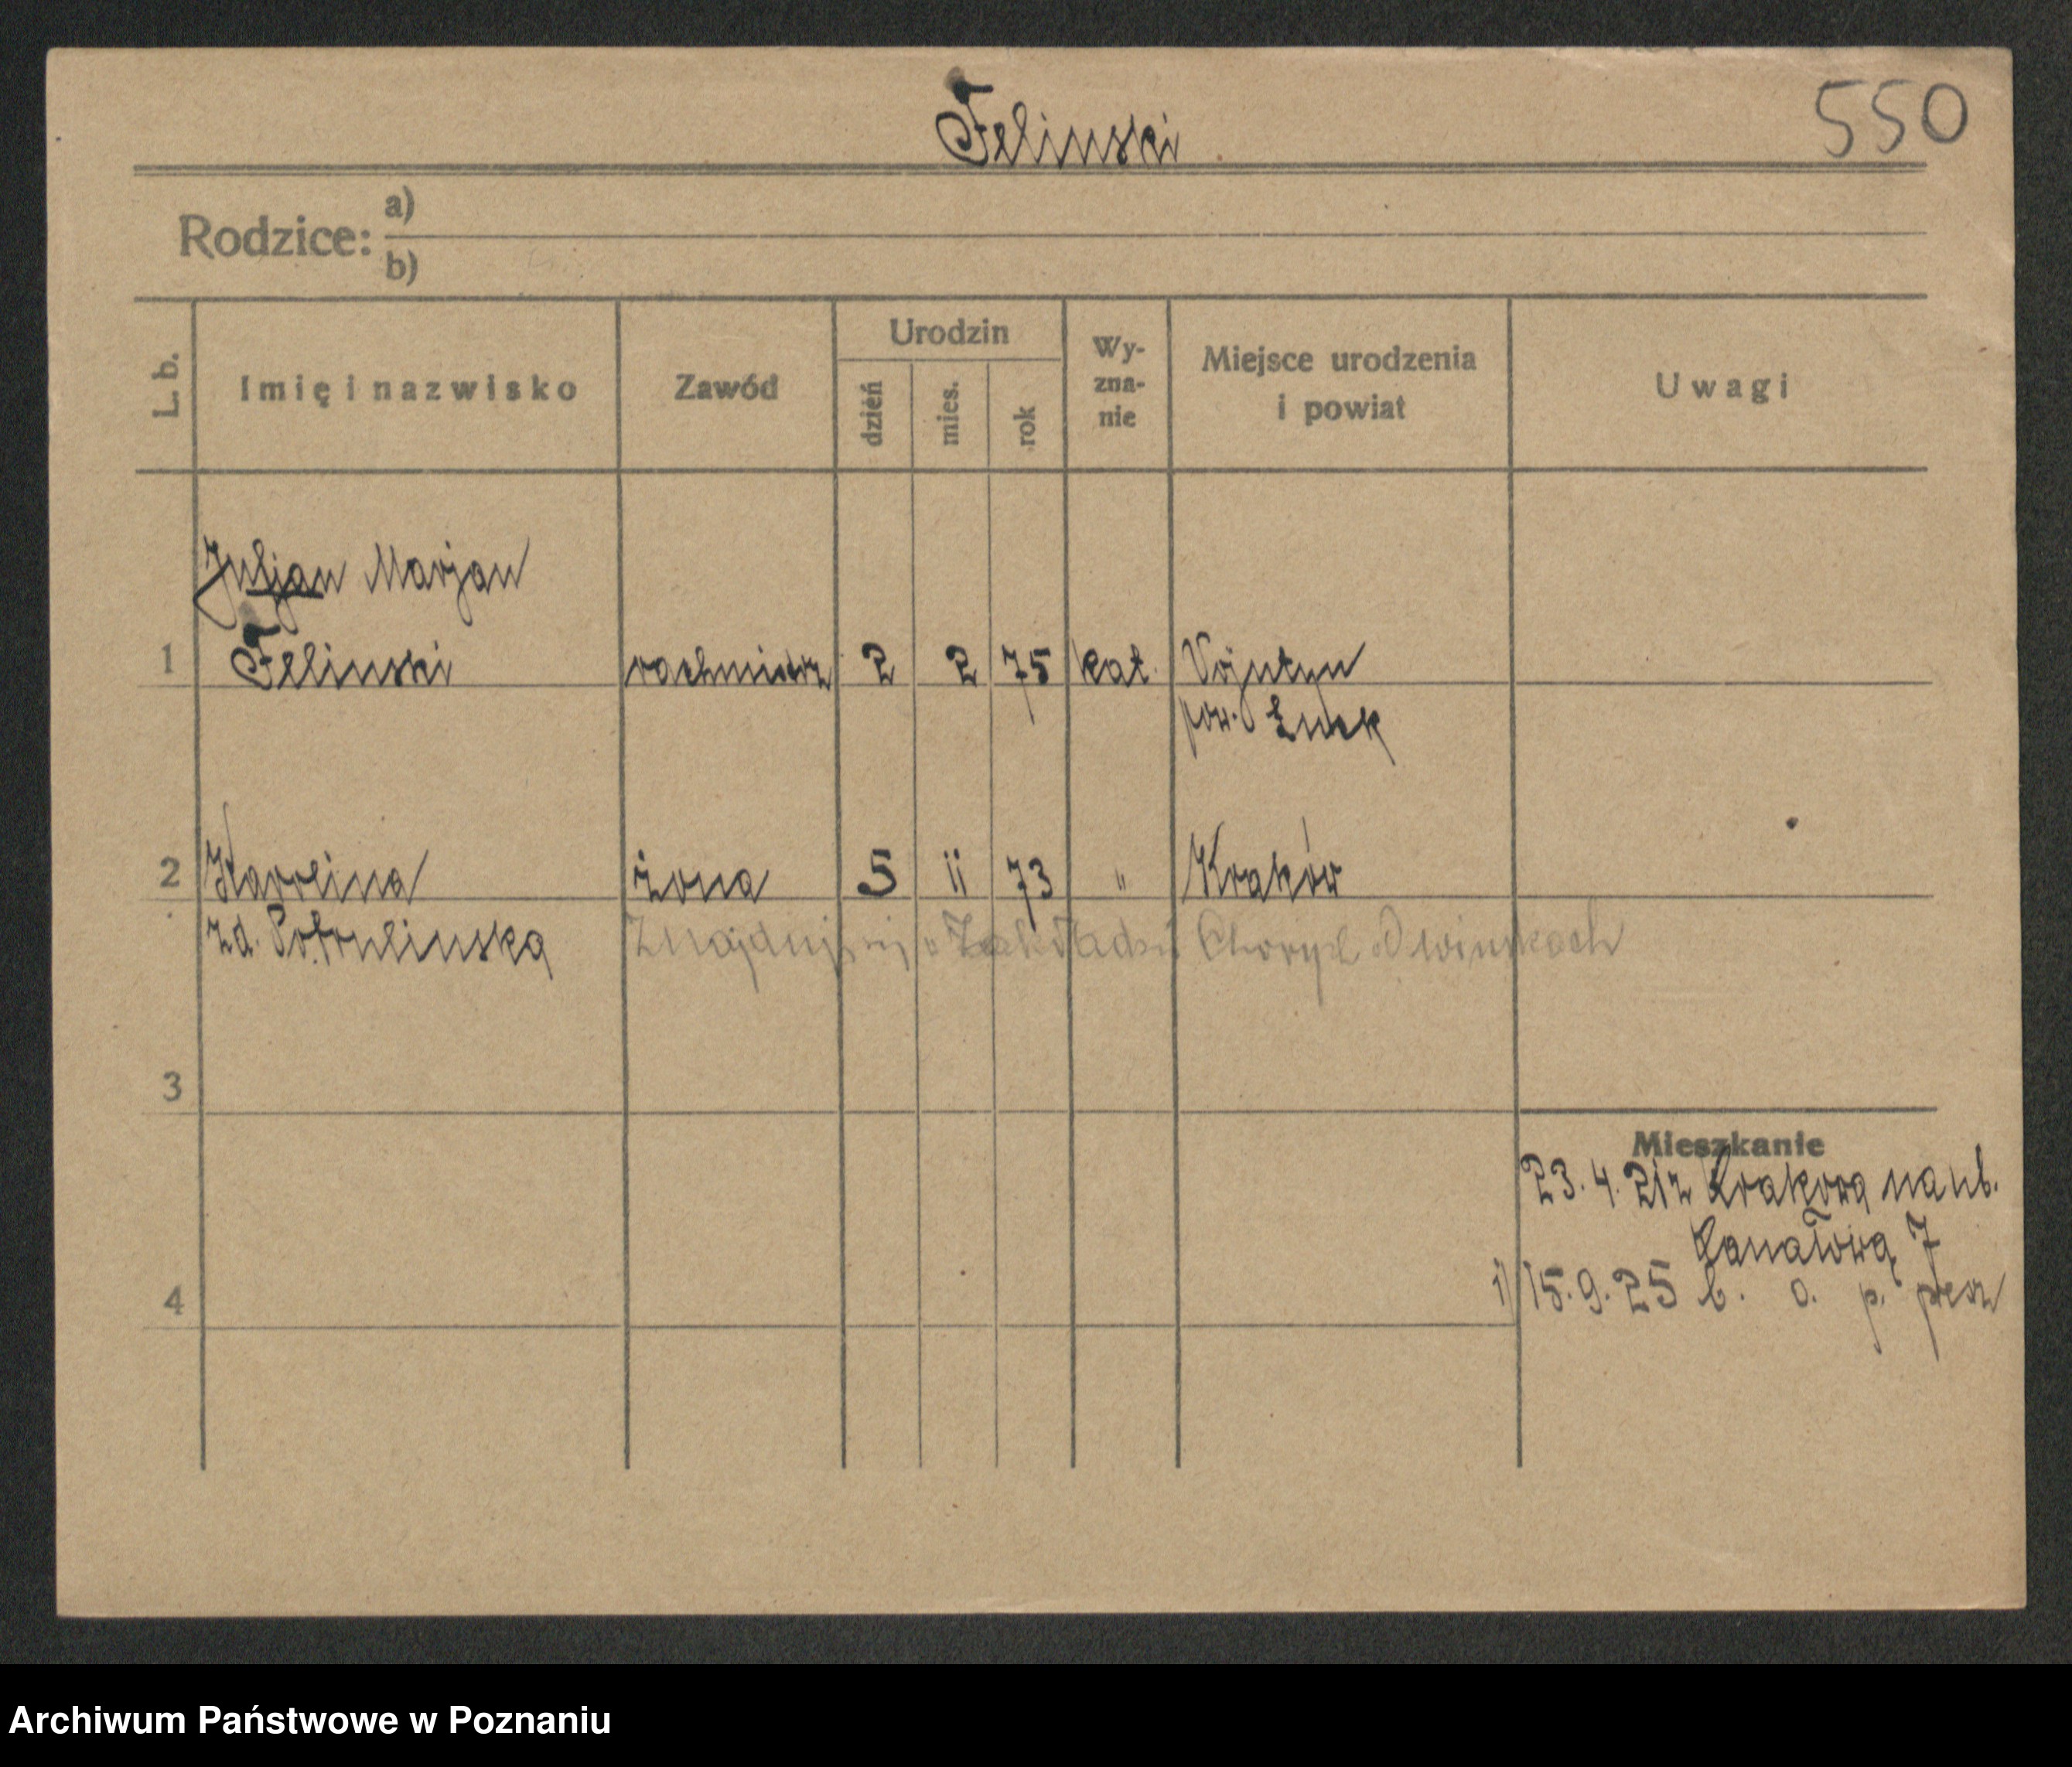 Felinski
550
Rodzice: a)
b)
L. b.
Imię i nazwisko
Zawód
Urodzin
dzień
mies.
rok
Wy-
zna-
nie
Miejsce urodzenia
i powiat
Uwagi
Juljan Marjan
1 Felinski rachmistrz 2 2 75 kat. Vojutyn
pow. Łuck
2 Karolina żona 5 11 73 " Kraków
zd. Znajduje się w Zakładzie Chorych Owinskach
3
Mieszkanie
23.4.21 z Krakowa na ul.
Kanałową 7
4 1) 15.9.25 b. o. p.
Archiwum Państwowe w Poznaniu